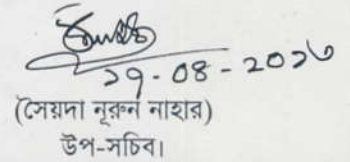 ১৭-০৪-২০১৬
(সৈয়দা নূরুন নাহার)
উপ-সচিব।